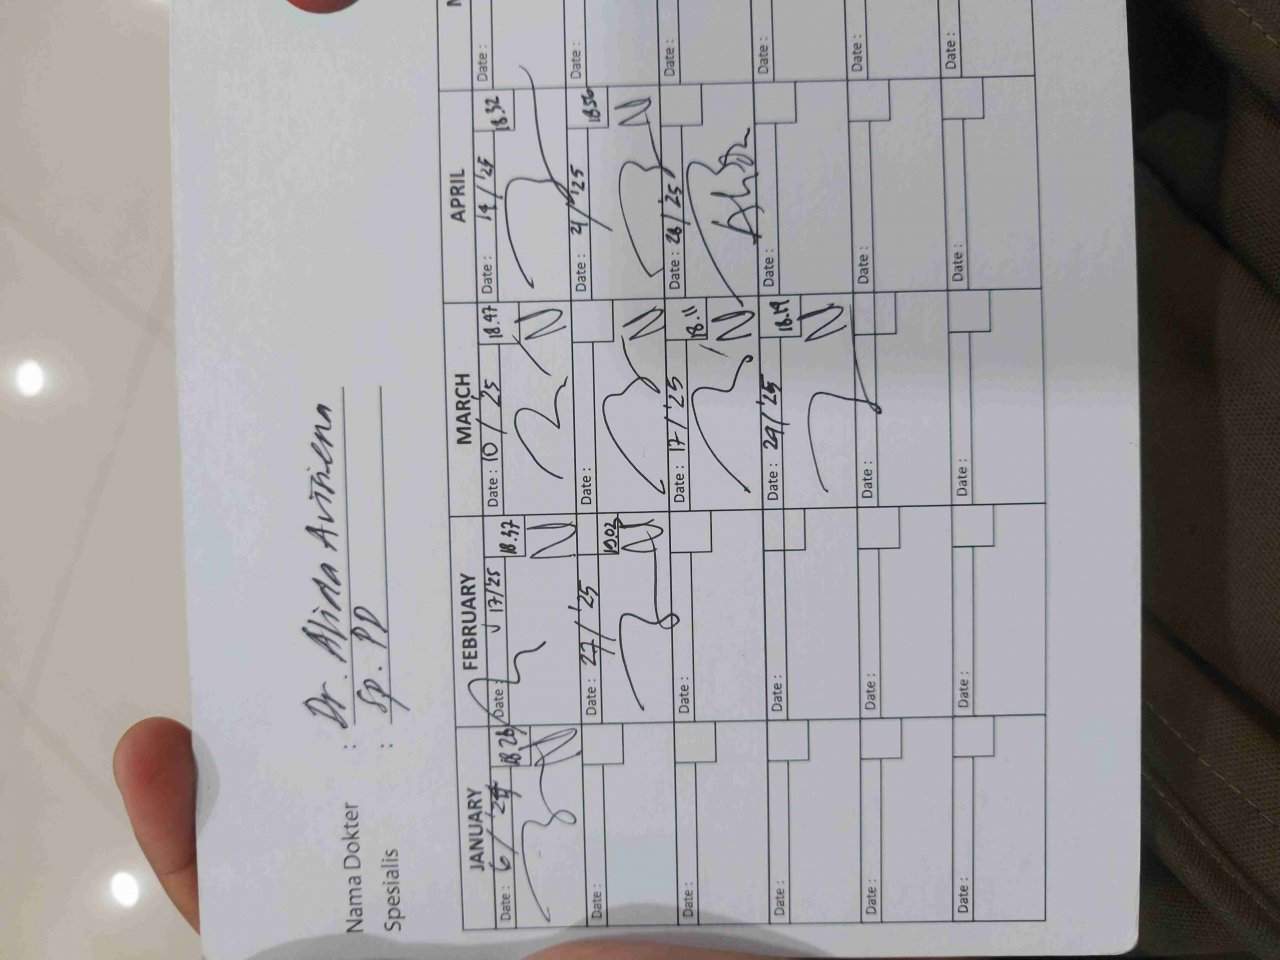 Nama Dokter : Dr. Alida Avisiena
Spesialis : Sp. PD
JANUARY FEBRUARY MARCH APRIL
Date : 6 / '24 18.26 Date : 17/25 18.37 Date : 10 / 25 18.47 Date : 14 / '25 18.32 Date :
Date : Date : 27 / '25 19.02 Date : Date : 21/ '25 18.56 Date :
Date : Date : Date : 17 / '25 18.11 Date : 28 / 25 Date :
Date : Date : Date : 24 / '25 18.19 Date : Date :
Date : Date : Date : Date : Date :
Date : Date : Date : Date : Date :